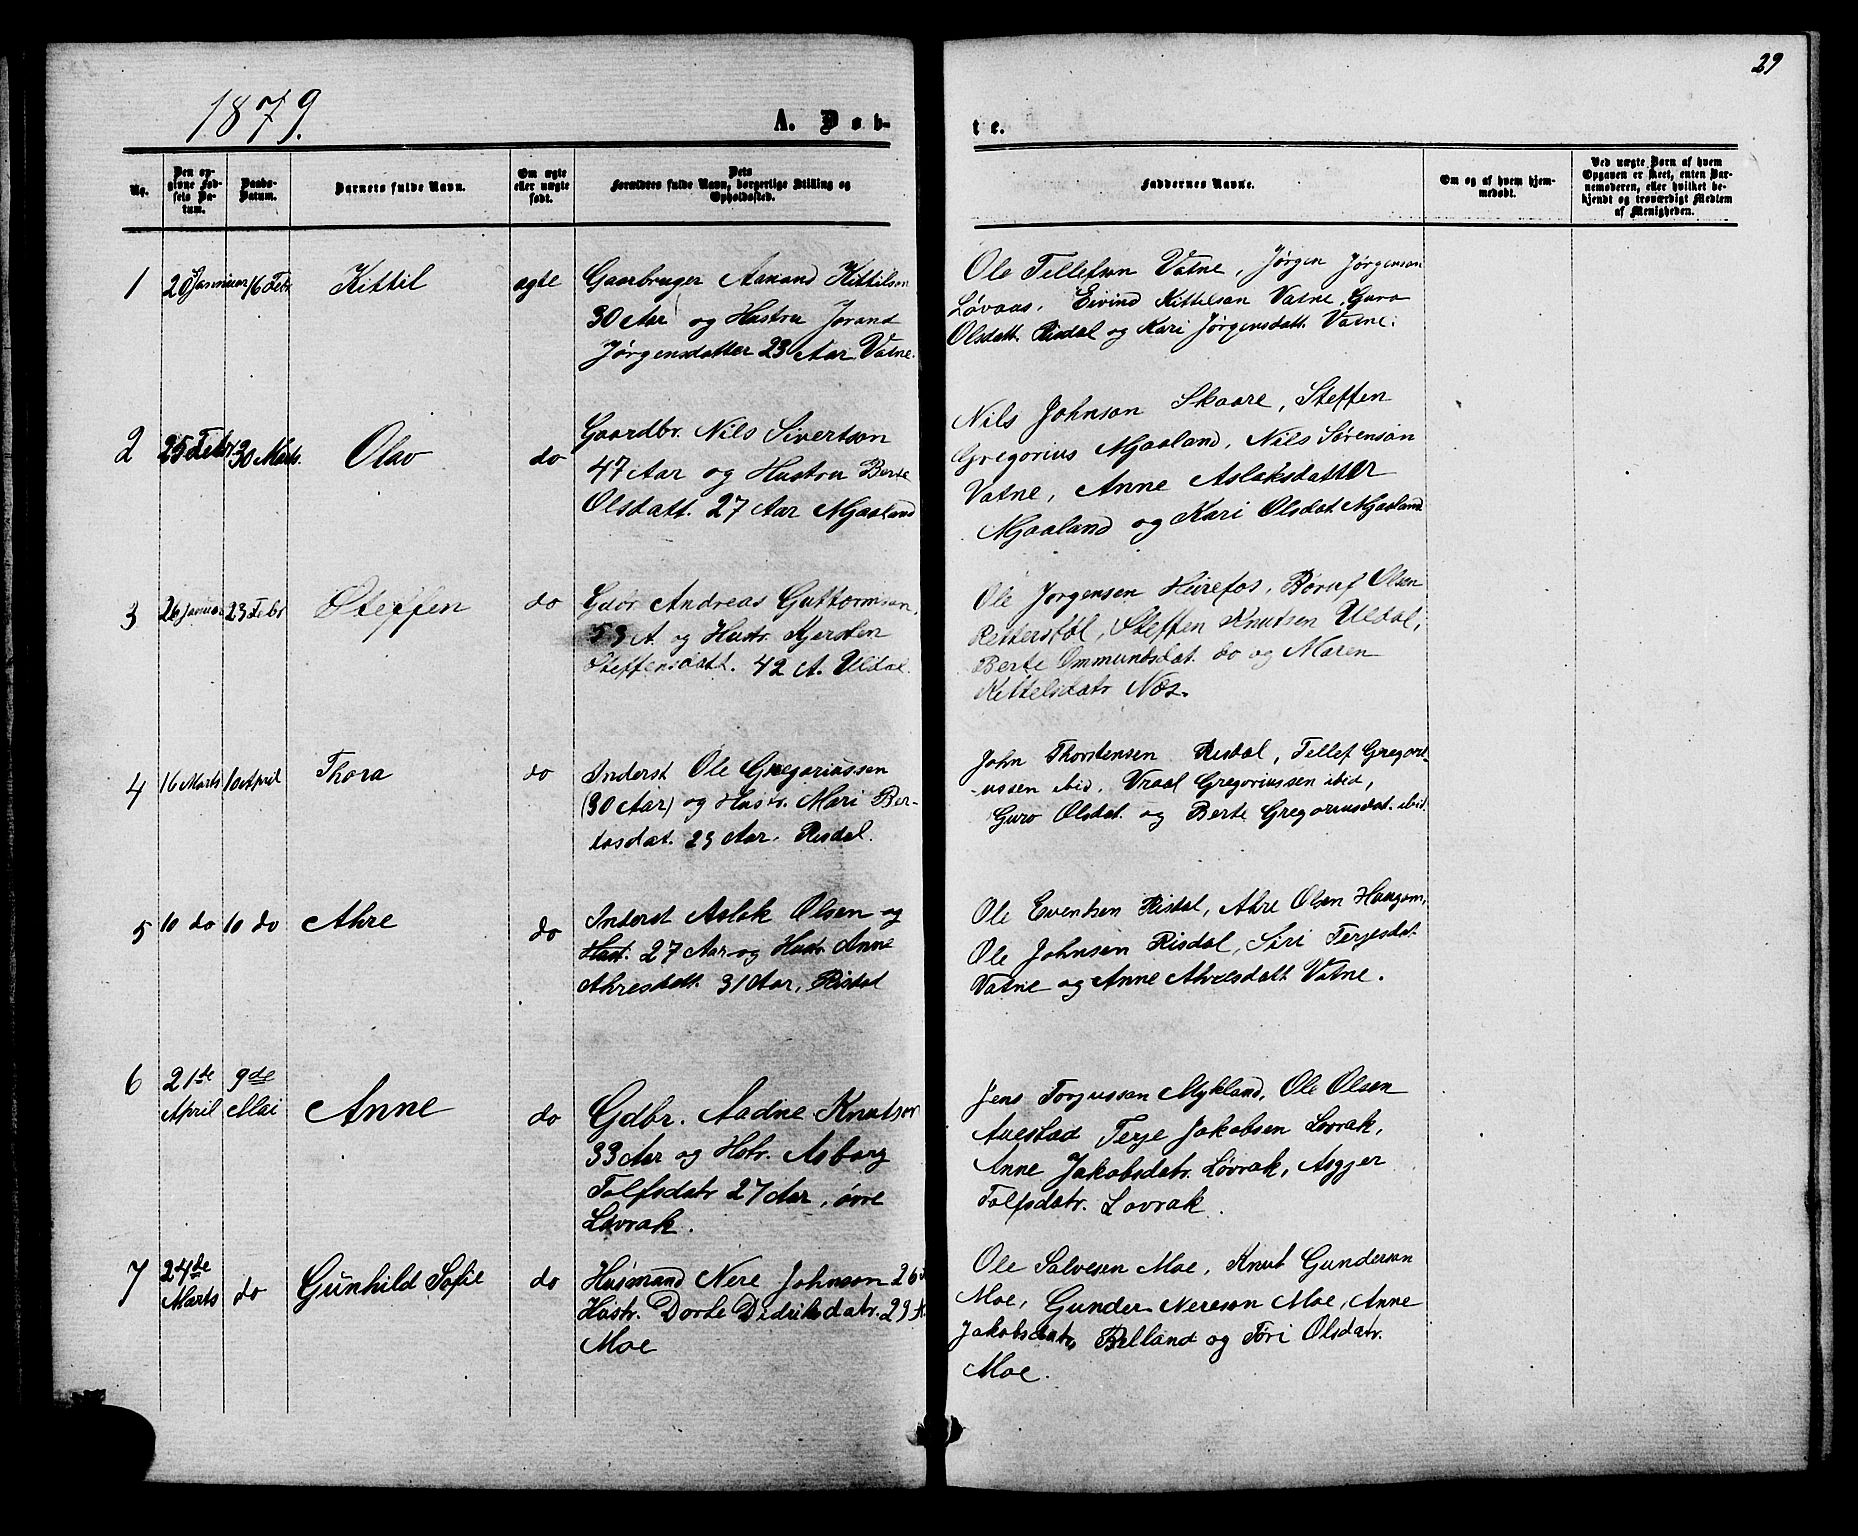 29
1879.
A. Døb-
te.
No.
Den op-
givne Fød-
sels Da-
tum.
Daabs-
Datum.
Barnets fulde Navn.
Om ægte
eller uægte
født.
Dets
Forældres fulde Navn, borgerlige Stilling og
Opholdssted.
Faddernes Navne.
Om og af hvem hjem-
medøbt.
Ved uægte Børn af hvem
Opgaven er skeet, enten Bar-
nemoderen, eller hvilket be-
kjendt og troværdigt Medlem
af Menigheden.
1
Januar 16 Febr
Kittil
ægte
Gaarbruger Aanand Kittilson
30 Aar og Hustru Jorand
Jørgensdatter 23 Aar Vatne.
Ole Tellefsen Vatne, Jørgen Jørgenson
Løvaas, Eivind Kittelsan Vatne, Guro
Olsdatt. Risdal og Kari Jørgensdatt. Vatne.
2
25 Febr 30 Mars.
Olav
do
Gaardbr. Nils Sivertson
47 Aar og Hustru Berte
Olsdatt. 27 Aar Mjaaland
Nils Johnson Skaare, Steffen
Gregorius Mjaaland, Nils Sørenson
Vatne, Anne Aslaksdatter
Mjaaland og Kari Olsdat Mjaaland
3
26 Januar 23 Febr
Steffen
do
Gdbr Andreas Guttormson,
53 A og Hustr. Kjersten
Steffensdatt. 42 A. Uldal
Ole Jørgensen Hurefos, Børuf Olsen
Rettersbøl, Steffen Knutsen Uldal,
Berte Ommundsdat. do og Maren
Kittelsdatr Næs.
4
16 Marts 10 April
Thora
do
Inderst Ole Gregoriussen
(30 Aar) og Hustr. Mari Ber-
tosdat. 23 Aar. Risdal.
John Thorstensen Risdal, Tellef Gregori-
-ussen ibid, Vraal Gregoriussen ibid,
Guro Olsdat. og Berte Gregoriusdat. ibid.
5
10 do 10 do
Ahre
do
Inderst Aslak Olsen og
Hust. 27 Aar og Hustr Anne
Ahresdatt. 31 Aar, Risdal
Ole Evensen Risdal, Ahre Olsen Haugom,
Ole Johnsen Risdal, Siri Terjesdat
Vatne og Anne Ahresdatt Vatne.
6
21de
April
9de
Mai
Anne
do
Gdbr. Aadne Knutson
33 Aar og Hstr. Asborg
Tolfsdatr 27 Aar, øvre
Løvrak.
Jens Torjussen Mykland, Ole Olsen
Auestad Terje Jakobsen Løvrak,
Anne Jakobsdatr. Løvrak, Asgjer
Tolfsdatr. Løvrak.
7
24de
Marts
do
Gunhild Sofie
do
Husmand Nere Johnson 26
Hustr. Dorte Didriksdatr. 29 A
Moe
Ole Salvesen Moe, Knut Gunderson
Moe, Gunder Nereson Moe, Anne
Jakobsdatr, Belland og Tori Olsdatr.
Moe.